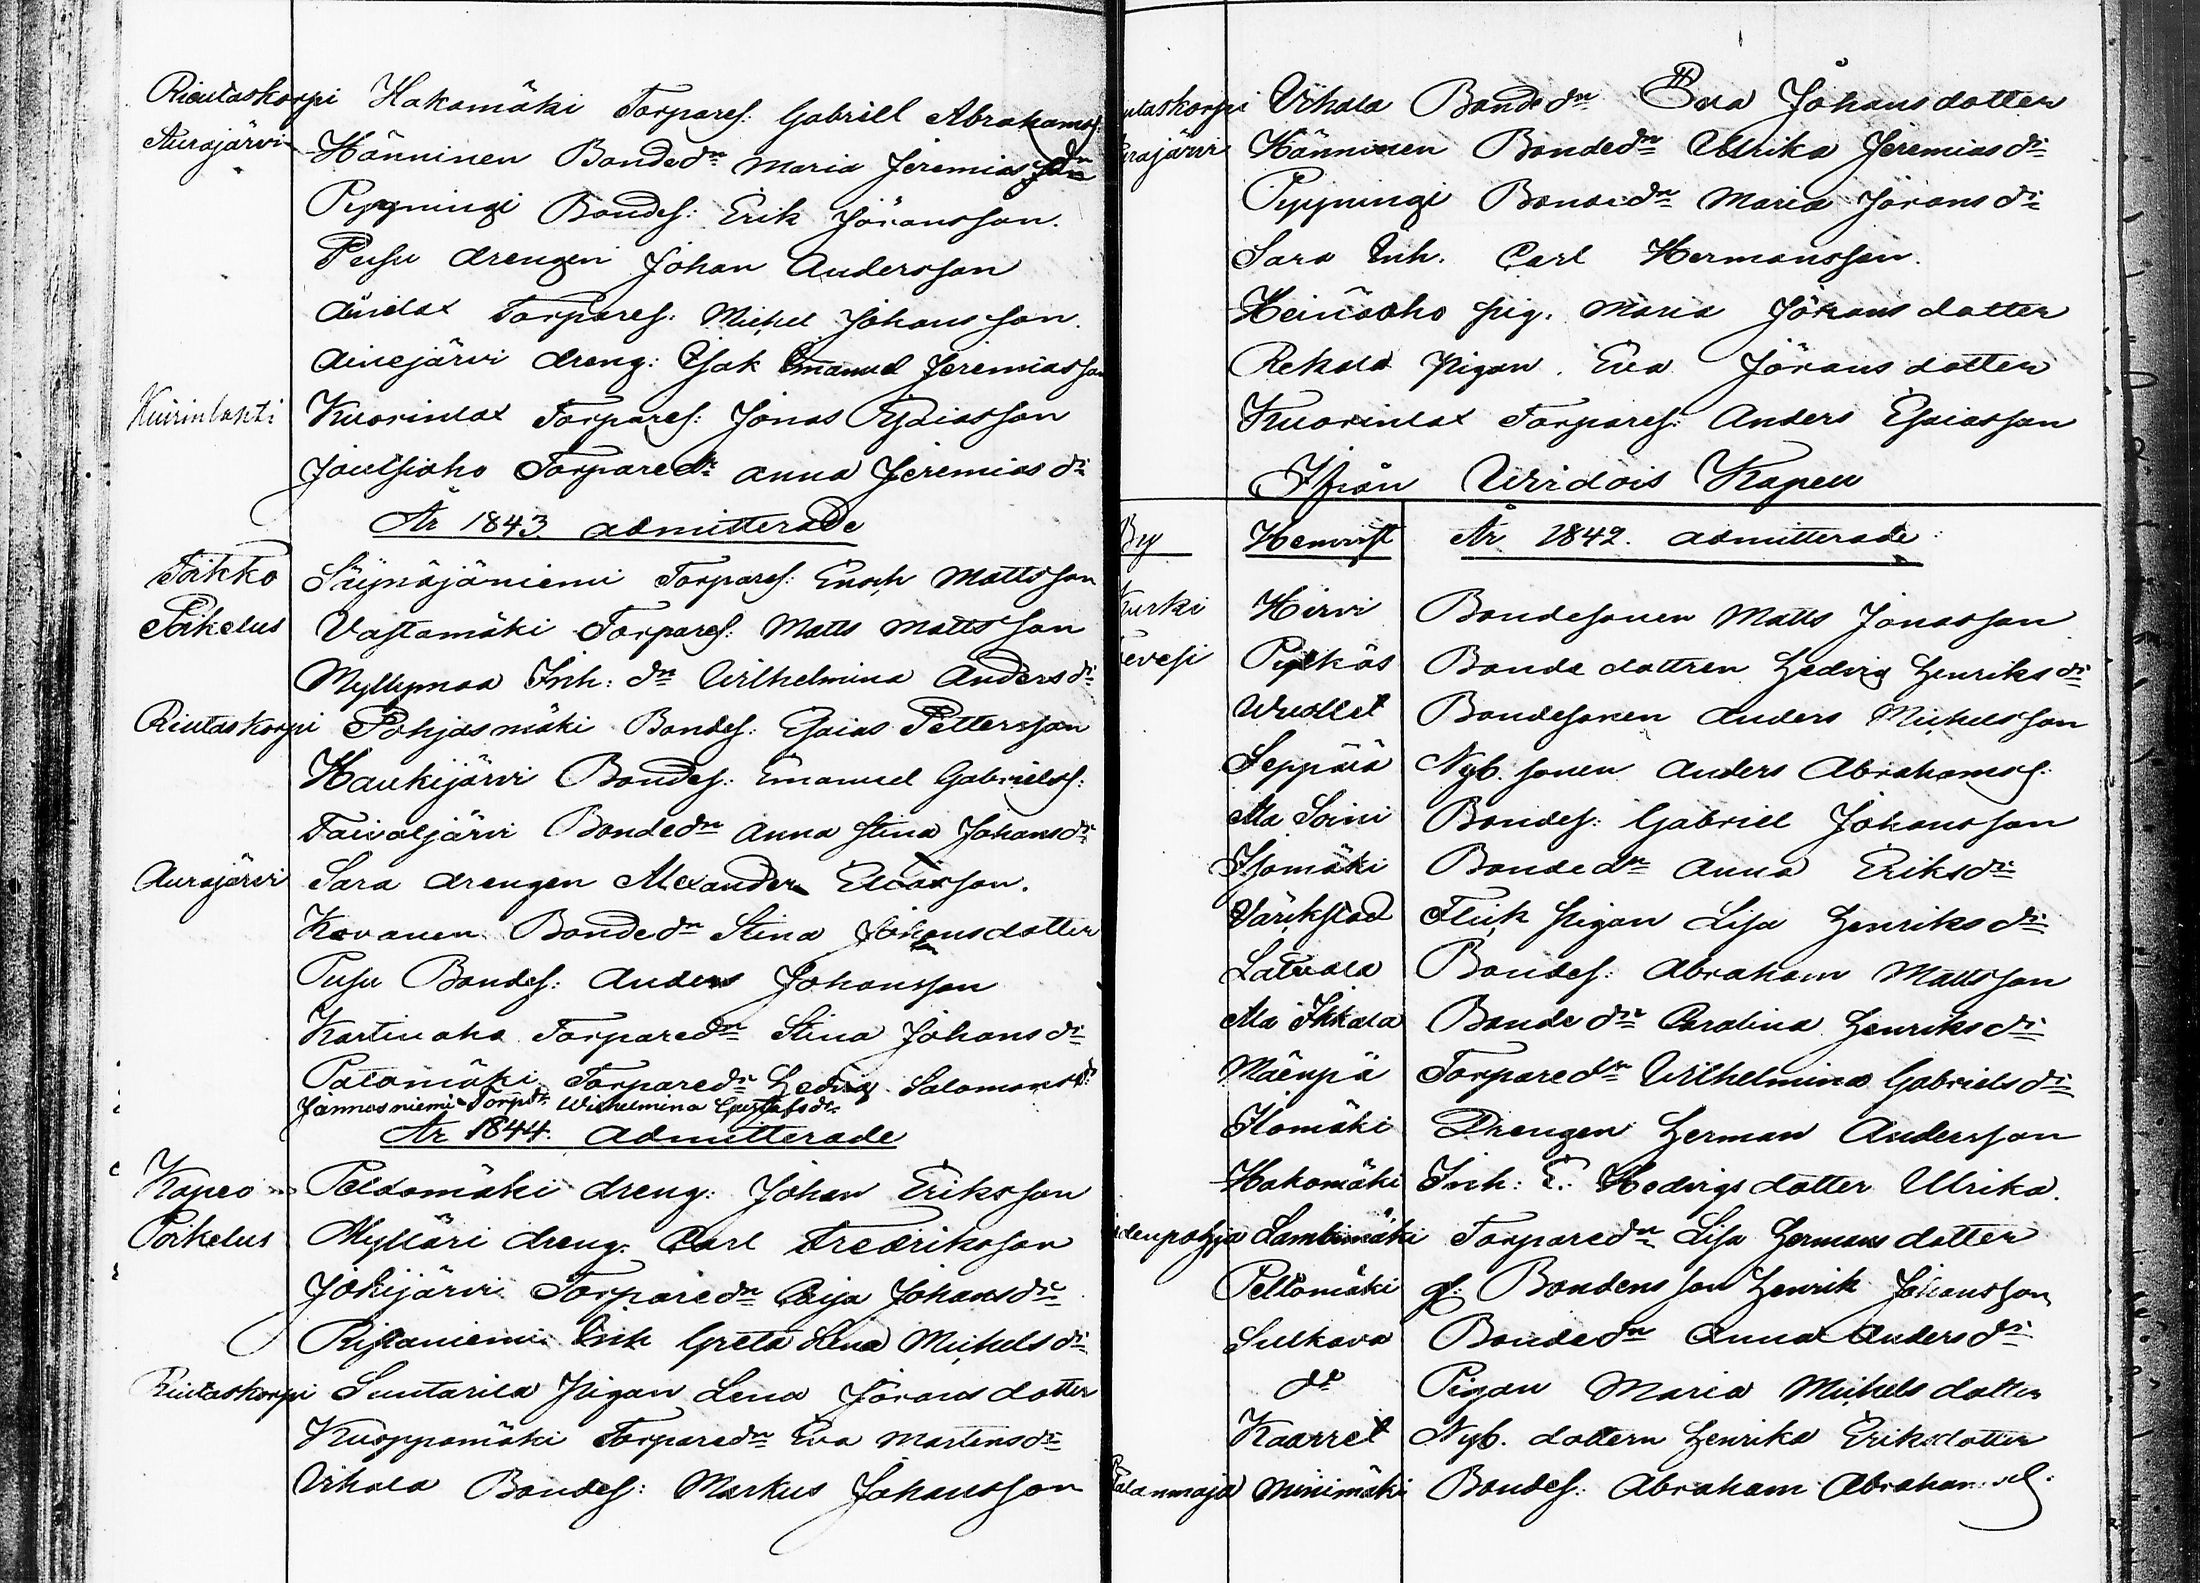 Riutaskorpi Hakamäki Torpares: Gabriell Abrahams:
Aurajärvi Hänninen Bondedn Maria Jeremias dn
Pyyningi Bondes: Erik Jöransson.
Pusu drengen Johan Andersson
Torpares: Michel Johansson.
Ainejärvi dreng: Isak Emanuel Jeremiasson
Kuirinlahti Kuorinlax Torpares: Jonas Esaiasson
Joutsiaho Torparedr Anna Jeremias dr
År 1843 admitterade
Toikko Siynäjäniemi Torpares: Enoch Mattsson
Poikelus Vastamäki Torpares: Matts Mattsson
Myllymaa Inh: dn Wilhelmina Anders dr
Riutaskorpi Pohjasmäki Bondes: Esaias Pettersson
Haukijärvi Bondes: Emanuel Gabriels:
Taivaljärvi Bondedn Anna Stina Johansdr
Aurajärvi Sara drengen Alexander Eliasson.
Kovanen Bondedn Stina Johansdotter
Pusu Bondes: Anders Johansson
Kartinaho Torparedn Stina Johans dr
Palomäki Torparedn Hedvig Salomonsdr
Jännasniemi Torpdr Wilhelmina Gustafsdr
År 1844. admitterade
Kapeo Peldomäki dreng: Johan Eriksson
Poikelus Mylläri dreng. Carl Fredriksson
Jokijärvi Torparedn Caja Johansdr
Ristaniemi Inh Greta Lena Michels dr
Riutaskorpi Suntarila Pigan Lena Jörans dotter
Kuoppamäki Torparedn Eva Martensdr
Vihola Bondes: Markus Johansson
utaskorpi Vihola Bondedn Eva Johansdotter
urajärvi Hänninen Bondedn Ulrika Jeremias dr
Pyyningi Bondedn Maria Jörans dr
Sara Inh. Carl Hermansson.
Heinäaho pig. Maria Jörans dotter
Rekola Pigan. Eva Jörans dotter
Kuorinlax Torpares: Anders Esaiasson
Ifrån Wirdois Kapell
By Hemvist År 1842. admitterade:
Kurki Hirvi Bondesonen Matts Jonasson
evesi Pylkäs Bonde dottren Hedvig Henriks dr
Wuollet Bondesonen Anders Michelsson
Seppälä Nyb. sonen Anders Abrahams:
Ala Soini Bondes: Gabriel Johansson
Isomäki Bondedn Anna Eriksdr
Flick pigan Lisa Henriks dr
Latvala Bondes: Abraham Mattsson
Ala Ikkala Bonde dn Carolina Henriksdr
Mäenpä Torparedn Wilhelmina Gabriels dr
Ilomäki Drengen Herman Andersson
Hakomäki Inh: E. Hedvigs dotter Ulrika.
denpohja Lambimäki Torparedn Lisa Hermans dotter
Peltomäki gl: Bondens son Henrik Johansson
Sulkava Bondedn Anna Anders dr
do Pigan Maria Michels dotter
Kaarret Nyb. dottern Henrika Eriksdotter
alanmaja Minimäki Bondes: Abraham Abrahams: